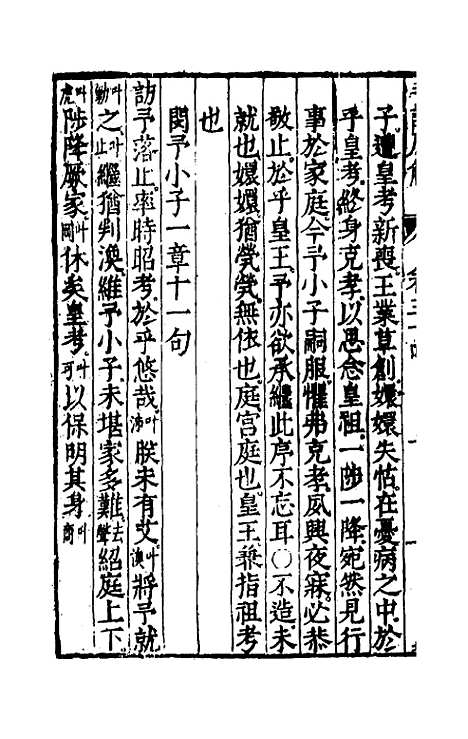 子遭皇考新喪王業草創嬛嬛失怙在憂病之中於
乎皇考終身克孝以思念皇祖一陟一降宛然見行
事於家庭今予小子嗣服懼弗克孝夙興夜寐必恭
敬止於乎皇王予亦欲承繼此序不忘耳○不造未
就也嬛嬛猶煢煢無依也庭宮庭也皇王兼指祖考
也
閔予小子一章十一句
訪予落止率時昭考於乎悠哉朕未有艾叶渙將予就
之止叶繼猶判渙維予小子未堪家多難去聲紹庭上下
陟降厥家休矣皇考叶可以保明其身叶商